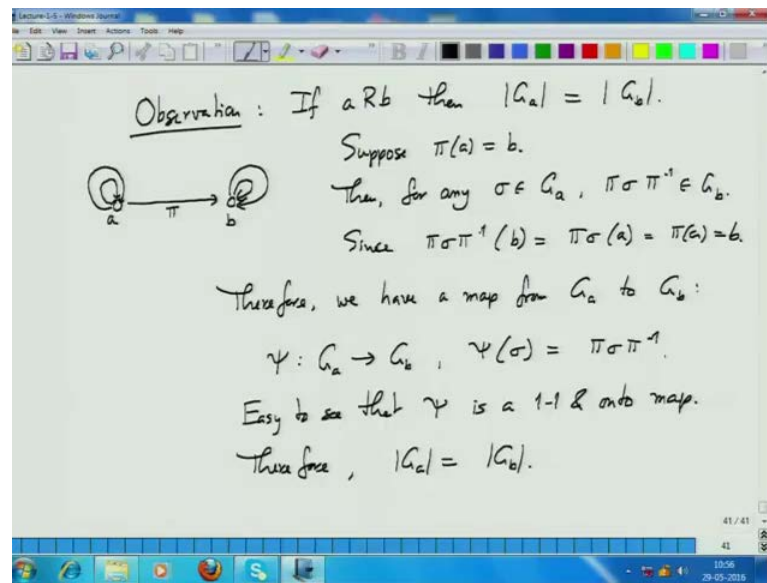 Lecture-1-5 - Windows Journal
File Edit View Insert Actions Tools Help
Observation : If a R b then |G_a| = |G_b|.
Suppose π(a) = b.
Then, for any σ ∈ G_a , π σ π⁻¹ ∈ G_b.
a π b
Since π σ π⁻¹ (b) = π σ (a) = π(a) = b.
Therefore, we have a map from G_a to G_b :
Ψ : G_a → G_b , Ψ(σ) = π σ π⁻¹.
Easy to see that Ψ is a 1-1 & onto map.
Therefore , |G_a| = |G_b|.
41 / 41
41
10:56
29-05-2016